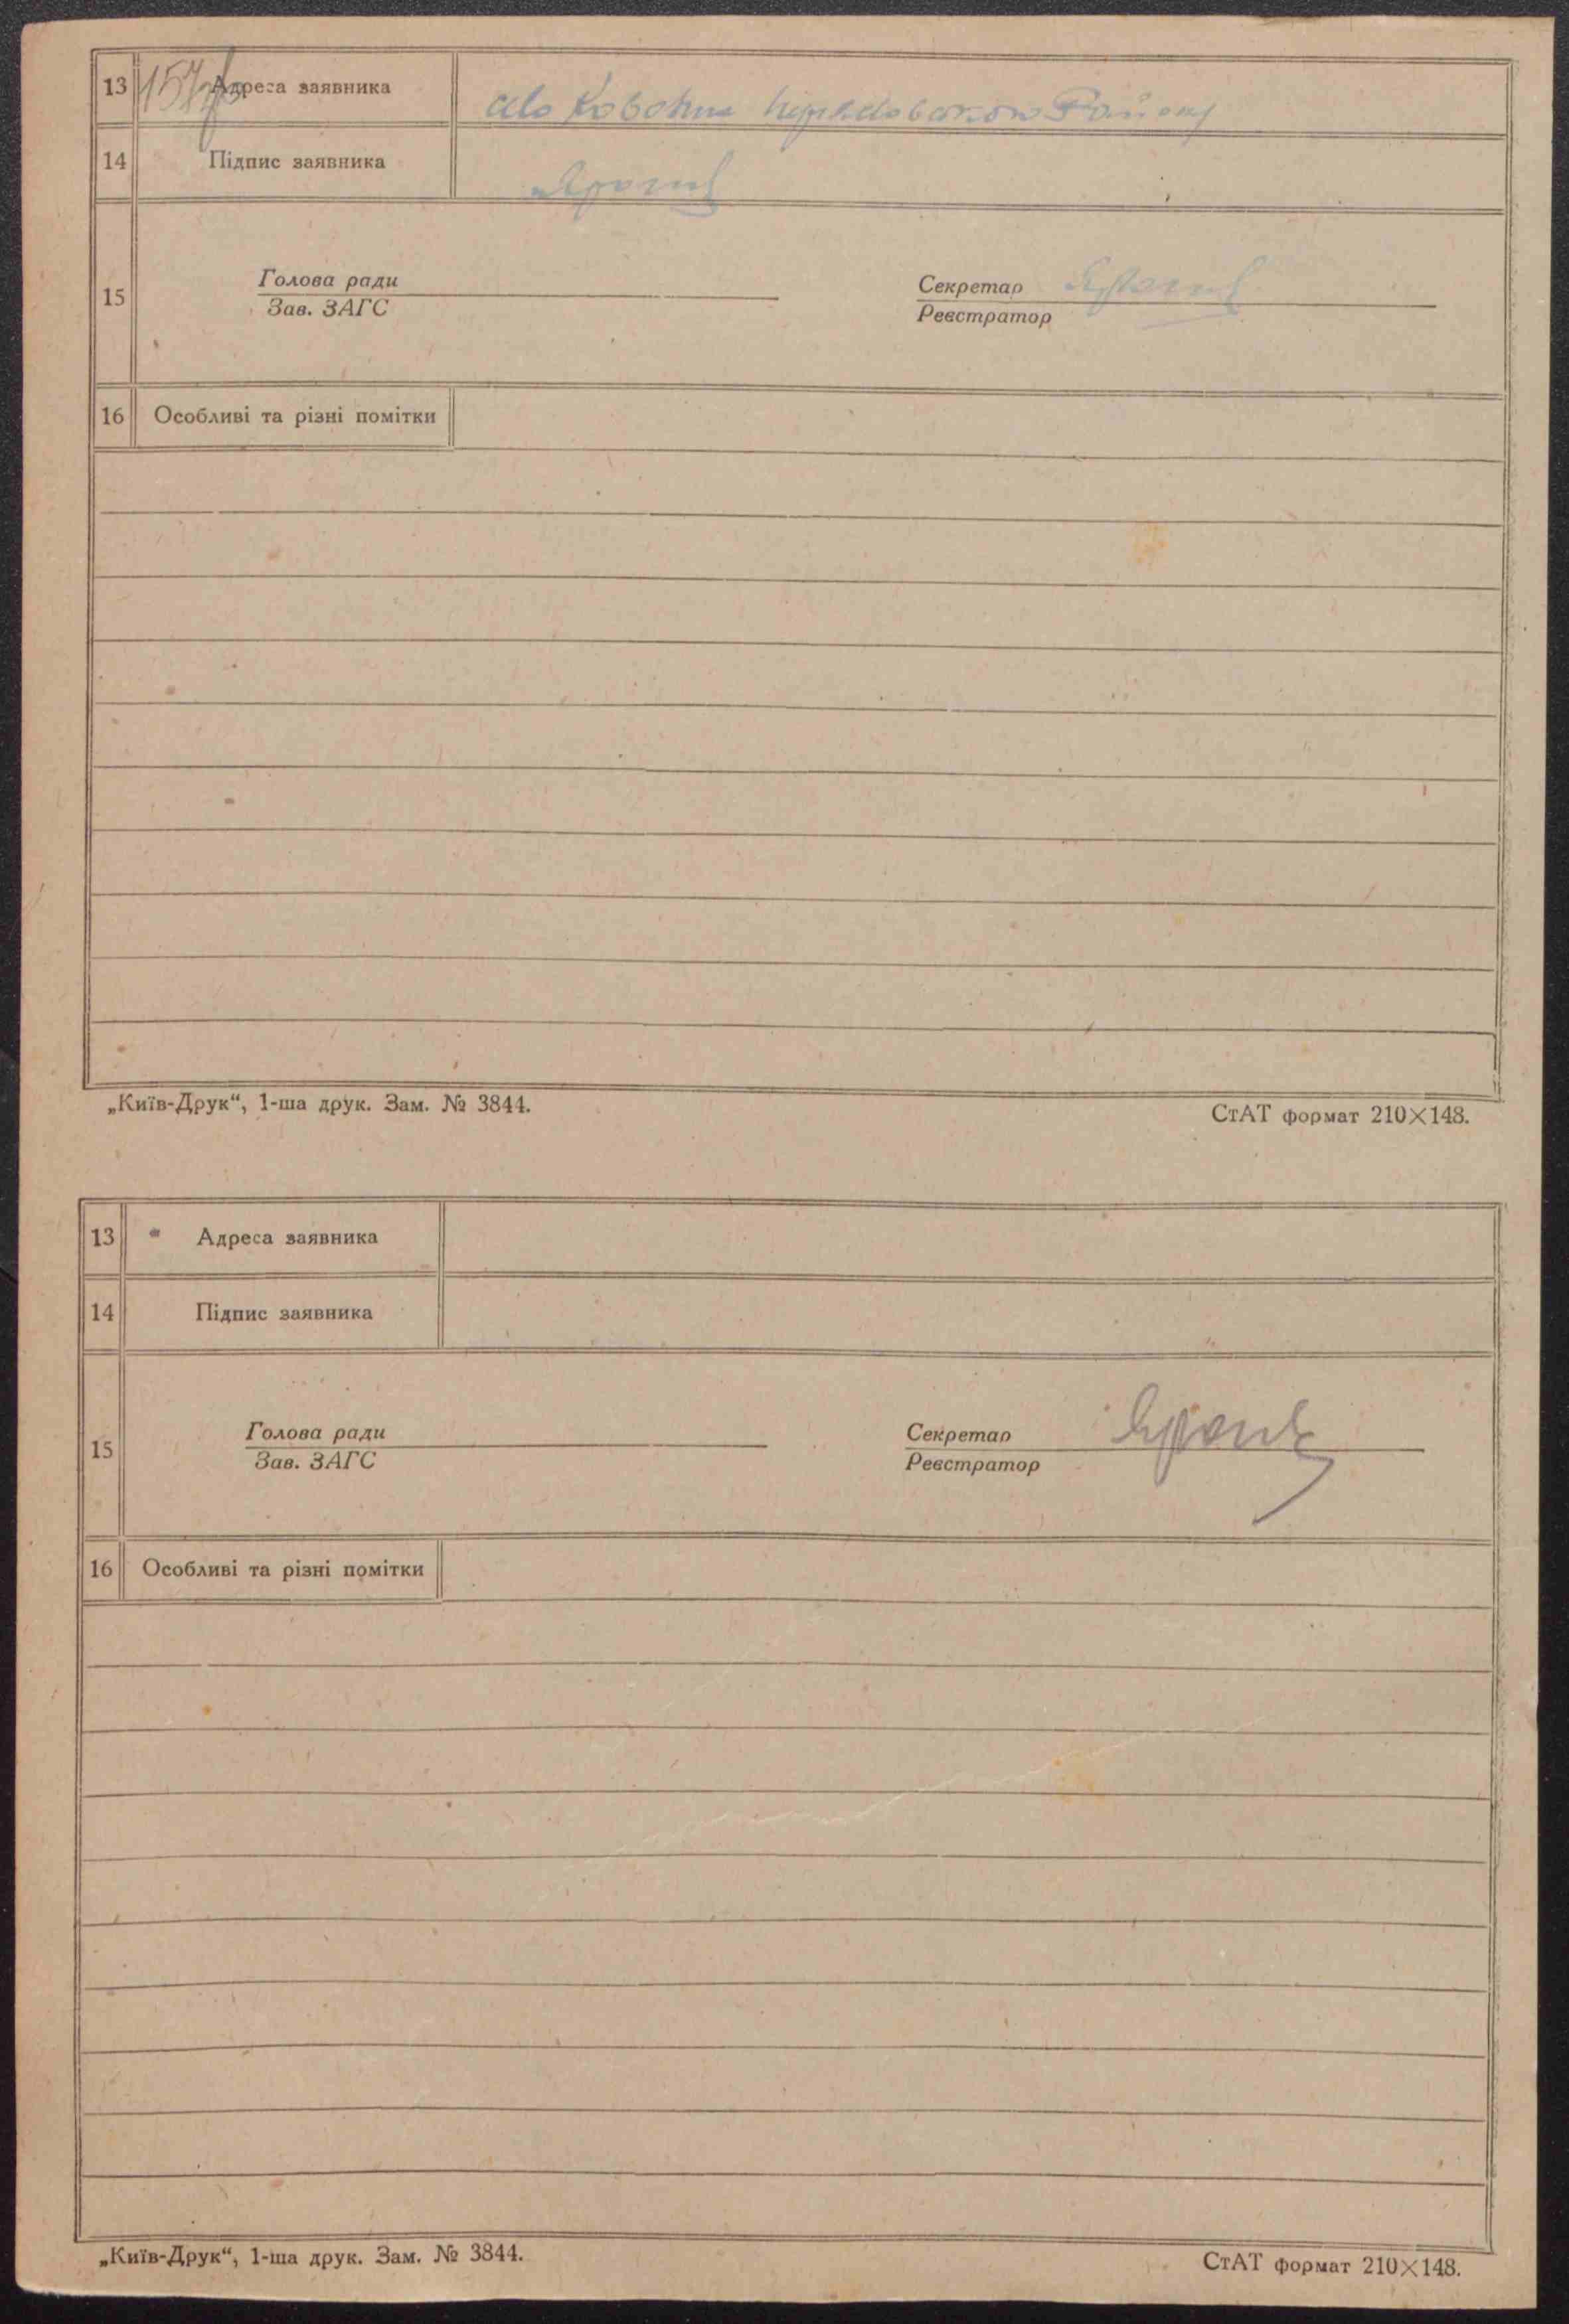 13 Адреса заявника
14 Підпис заявника
15 Голова ради Секретар
Зав. ЗАГС Реєстратор
16 Особливі та різні помітки
„Київ-Друк“, 1-ша друк. Зам. № 3844. СтАТ формат 210×148.
13 Адреса заявника
14 Підпис заявника
15 Голова ради Секретар
Зав. ЗАГС Реєстратор
16 Особливі та різні помітки
„Київ-Друк“, 1-ша друк. Зам. № 3844. СтАТ формат 210×148.